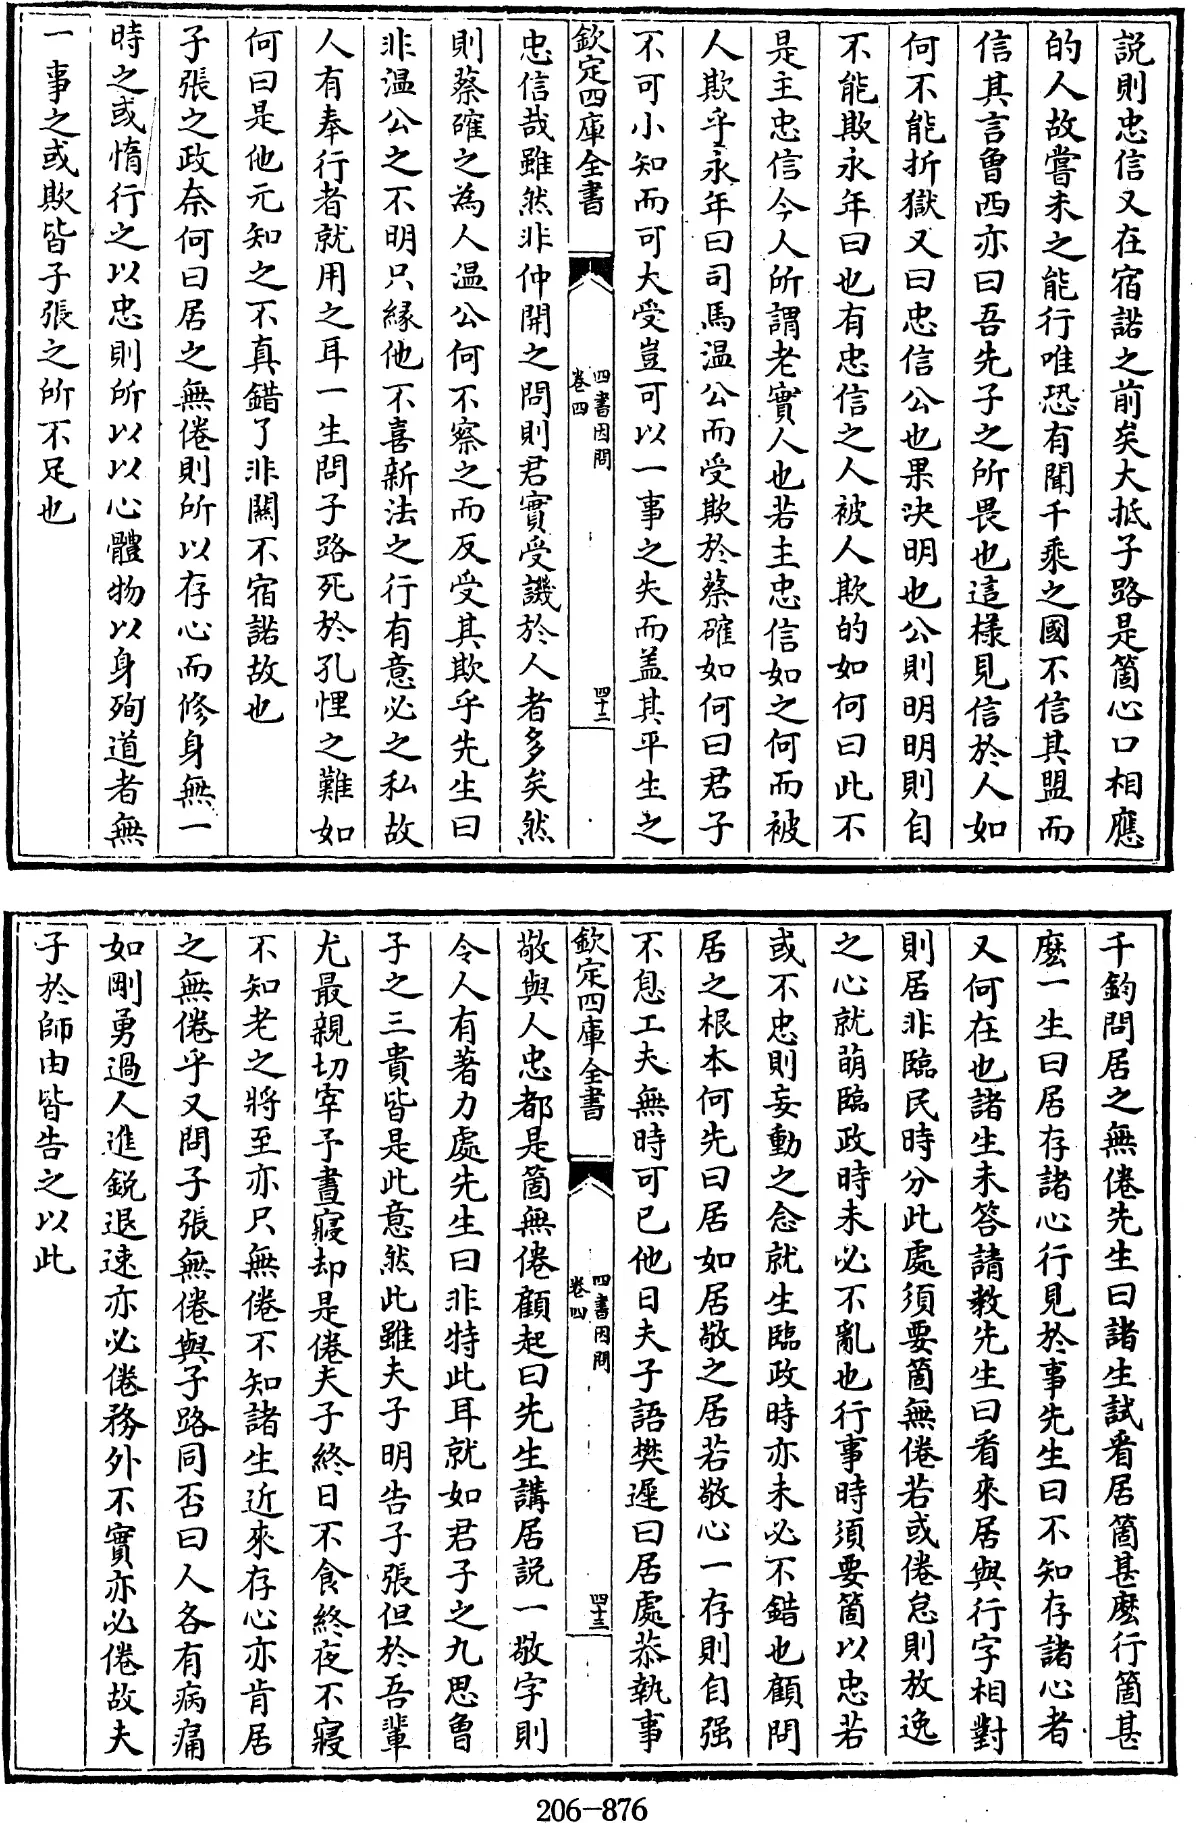 説則忠信又在宿諾之前矣大抵子路是箇心口相應
的人故嘗未之能行唯恐有聞千乘之國不信其盟而
信其言魯西亦曰吾先子之所畏也這樣見信於人如
何不能折獄又曰忠信公也果决明也公則明明則自
不能欺永年曰也有忠信之人被人欺的如何曰此不
是主忠信今人所謂老實人也若主忠信如之何而被
人欺乎永年曰司馬温公而受欺於蔡確如何曰君子
不可小知而可大受豈可以一事之失而盖其平生之
欽定四庫全書
四書因問
卷四
四十二
忠信哉雖然非仲開之問則君實受譏於人者多矣然
則蔡確之為人温公何不察之而反受其欺乎先生曰
非温公之不明只緣他不喜新法之行有意必之私故
人有奉行者就用之耳一生問子路死於孔悝之難如
何曰是他元知之不真錯了非關不宿諾故也
子張之政奈何曰居之無倦則所以存心而修身無一
時之或惰行之以忠則所以以心體物以身殉道者無
一事之或欺皆子張之所不足也
千鈞問居之無倦先生曰諸生試看居箇甚麽行箇甚
麽一生曰居存諸心行見於事先生曰不知存諸心者
又何在也諸生未答請教先生曰看來居與行字相對
則居非臨民時分此處須要箇無倦若或倦怠則放逸
之心就萌臨政時未必不亂也行事時須要箇以忠若
或不忠則妄動之念就生臨政時亦未必不錯也顧問
居之根本何先曰居如居敬之居若敬心一存則自强
不息工夫無時可已他日夫子語樊遲曰居處恭執事
欽定四庫全書
四書因問
卷四
四十三
敬與人忠都是箇無倦顧起曰先生講居説一敬字則
令人有著力處先生曰非特此耳就如君子之九思魯
子之三貴皆是此意然此雖夫子明告子張但於吾輩
尤最親切宰予晝寢却是倦夫子終日不食終夜不寢
不知老之將至亦只無倦不知諸生近來存心亦肯居
之無倦乎又問子張無倦與子路同否曰人各有病痛
如剛勇過人進鋭退速亦必倦務外不實亦必倦故夫
子於師由皆告之以此
206-876